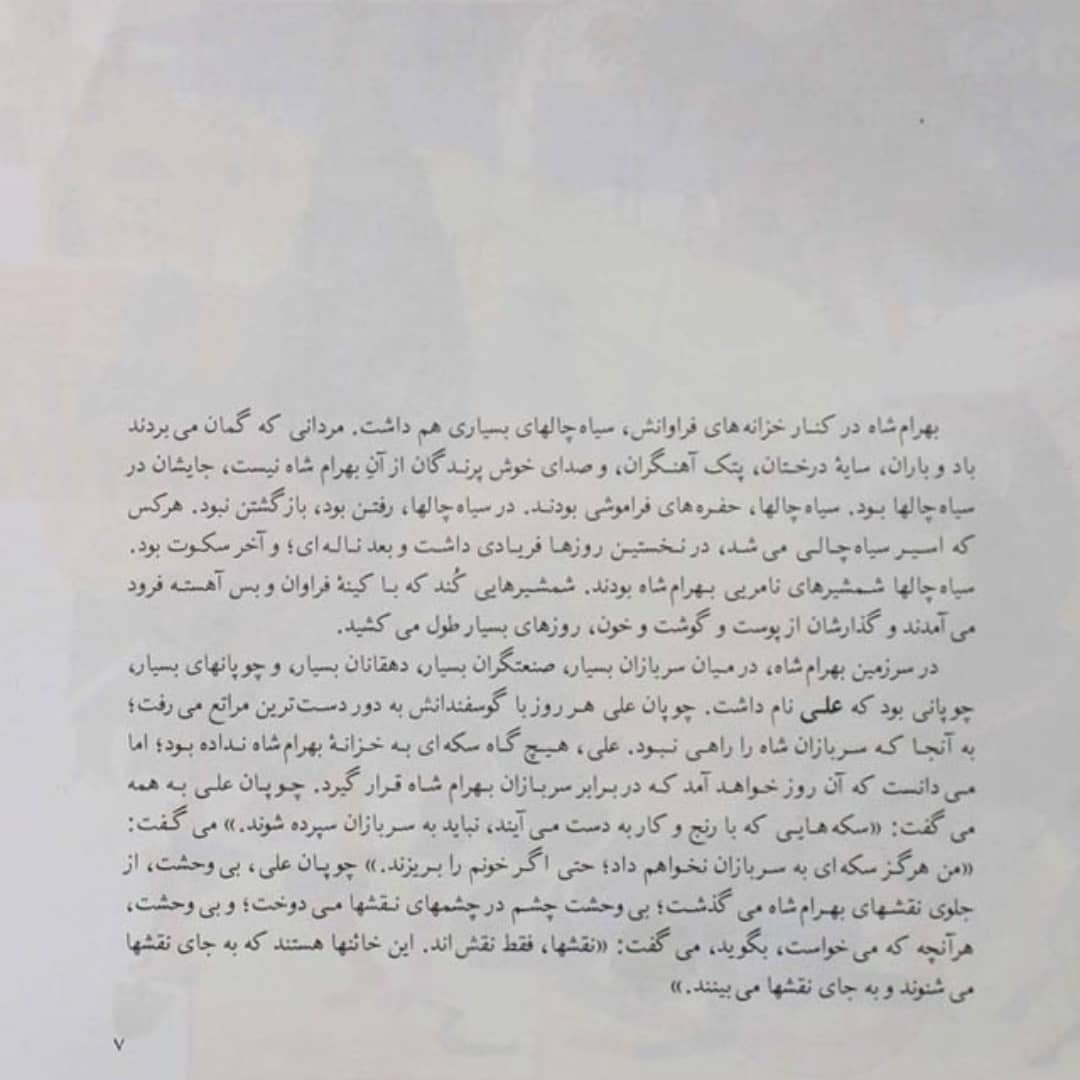 بهرام‌شاه در کنار خزانه‌های فراوانش، سیاه‌چالهای بسیاری هم داشت. مردانی که گمان می‌بردند
باد و باران، سایهٔ درختان، پتک آهنگران، و صدای خوش پرندگان از آنِ بهرام شاه نیست، جایشان در
سیاه‌چالها بود. سیاه‌چالها، حفره‌های فراموشی بودند. در سیاه‌چالها، رفتن بود، بازگشتن نبود. هرکس
که اسیر سیاه‌چالی می‌شد، در نخستین روزها فریادی داشت و بعد ناله‌ای؛ و آخر سکوت بود.
سیاه‌چالها شمشیرهای نامریی بهرام‌شاه بودند. شمشیرهایی کُند که با کینهٔ فراوان و بس آهسته فرود
می‌آمدند و گذارشان از پوست و گوشت و خون، روزهای بسیار طول می‌کشید.
در سرزمین بهرام‌شاه، در میان سربازان بسیار، صنعتگران بسیار، دهقانان بسیار، و چوپانهای بسیار،
چوپانی بود که علی نام داشت. چوپان علی هر روز با گوسفندانش به دور دست‌ترین مراتع می‌رفت؛
به آنجا که سربازان شاه را راهی نبود. علی، هیچ گاه سکه‌ای به خزانهٔ بهرام‌شاه نداده بود؛ اما
می‌دانست که آن روز خواهد آمد که در برابر سربازان بهرام شاه قرار گیرد. چوپان علی به همه
می‌گفت: «سکه‌هایی که با رنج و کار به دست می‌آیند، نباید به سربازان سپرده شوند.» می‌گفت:
«من هرگز سکه‌ای به سربازان نخواهم داد؛ حتی اگر خونم را بریزند.» چوپان علی، بی‌وحشت، از
جلوی نقشهای بهرام‌شاه می‌گذشت؛ بی‌وحشت چشم در چشمهای نقشها می‌دوخت؛ و بی‌وحشت،
هرآنچه که می‌خواست، بگوید، می‌گفت: «نقشها، فقط نقش‌اند. این خائنها هستند که به جای نقشها
می‌شنوند و به جای نقشها می‌بینند.»
۷